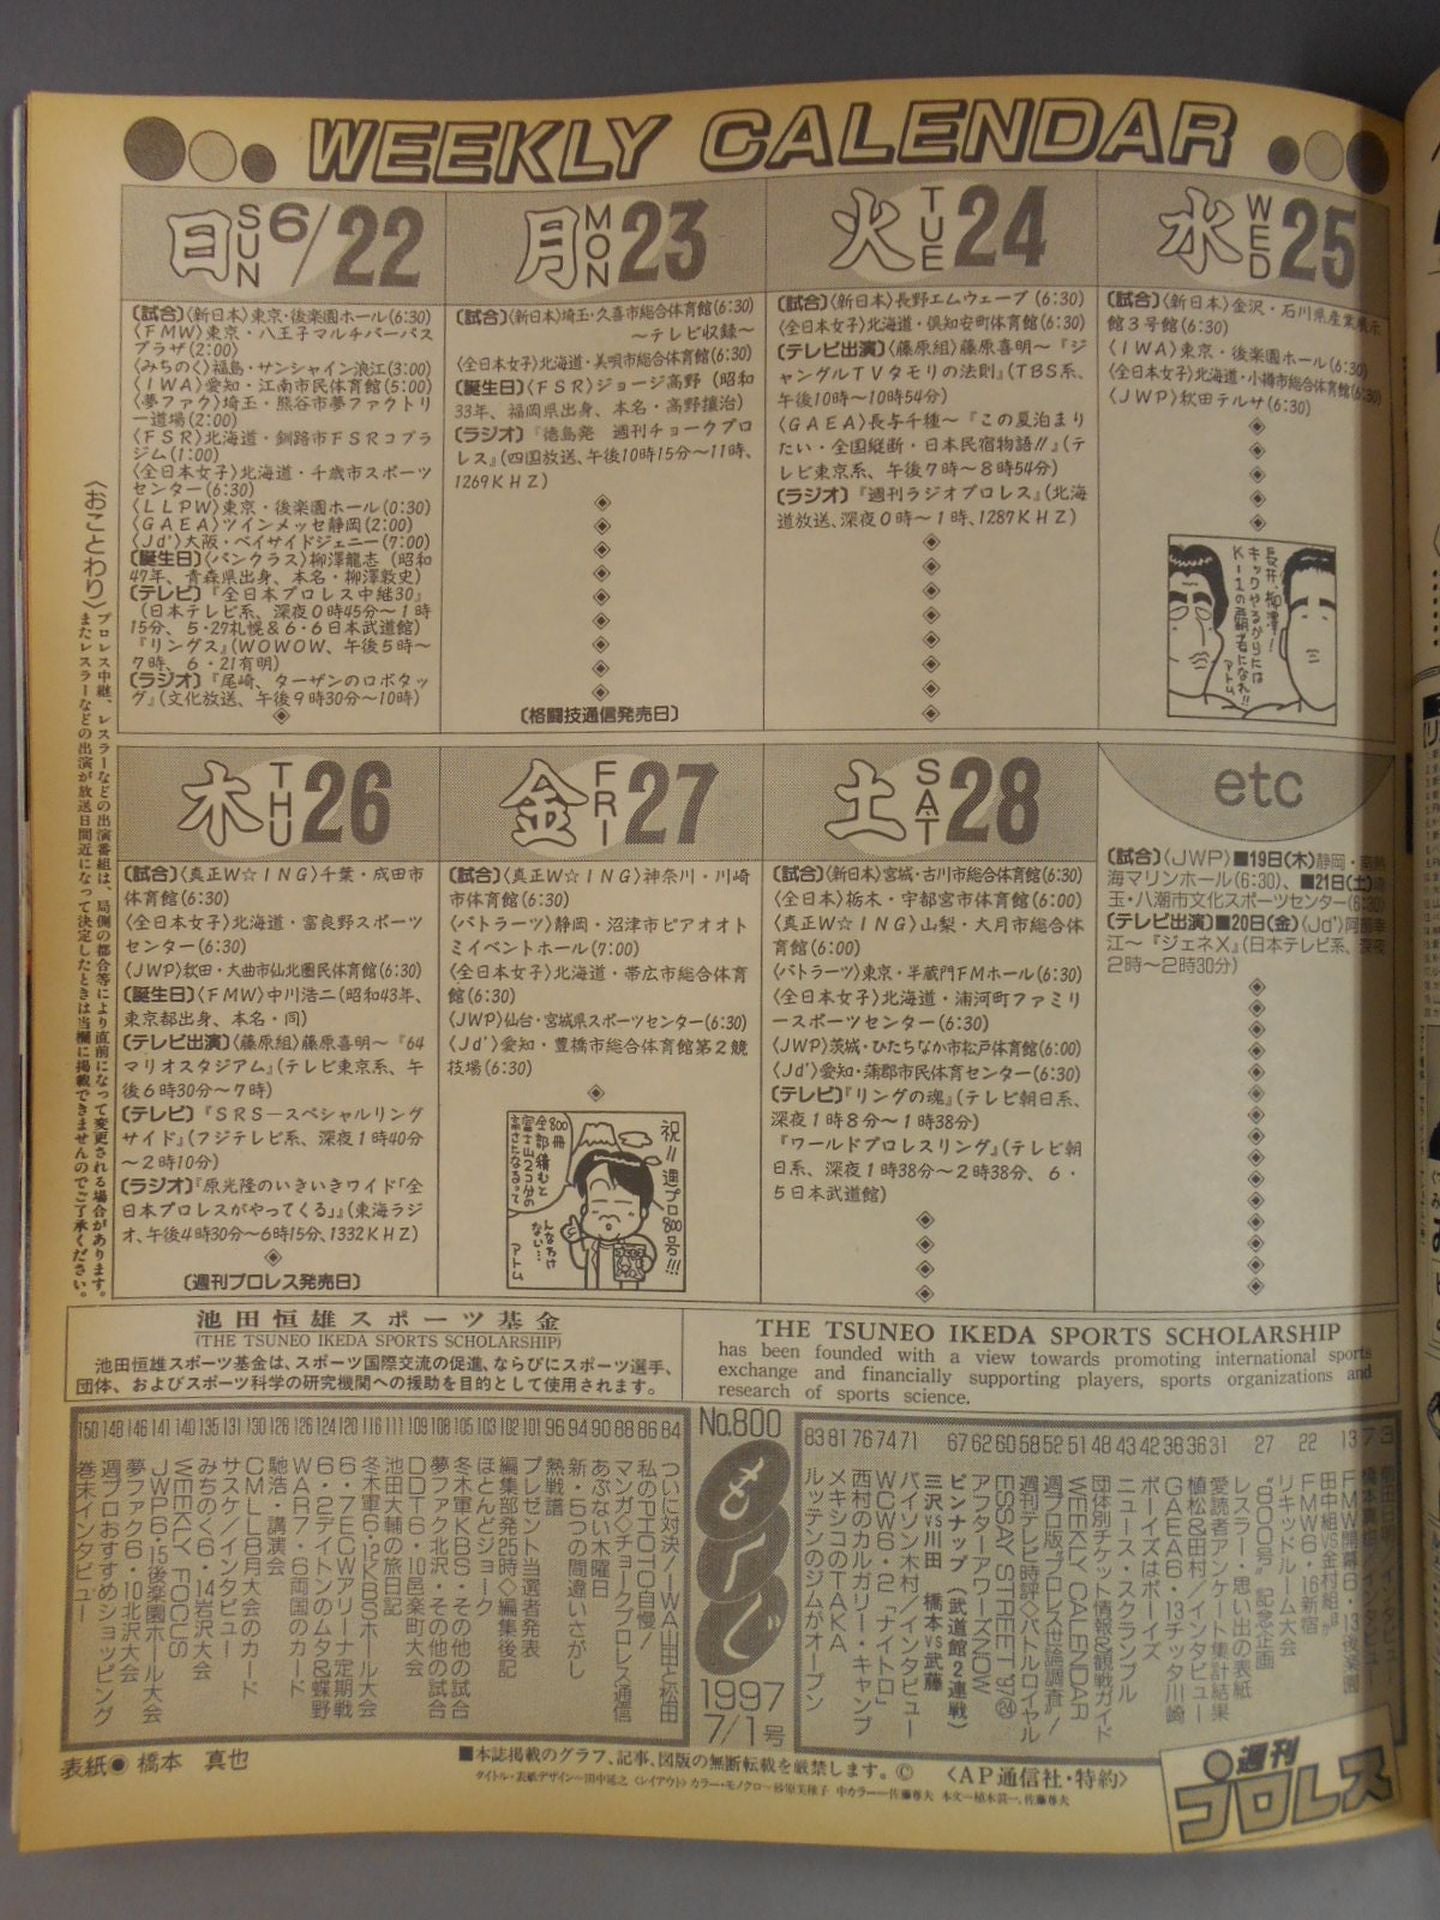 WEEKLY CALENDAR
日 SUN 6/22
〔試合〕〈新日本〉東京・後楽園ホール(6:30)
〈FMW〉東京・八王子マルチパーパス
プラザ(2:00)
〈みちのく〉福島・サンシャイン浪江(3:00)
〈IWA〉愛知・江南市民体育館(5:00)
〈夢ファク〉埼玉・熊谷市夢ファクトリ
ー道場(2:00)
〈FSR〉北海道・釧路市FSRコブラ
ジム(1:00)
〈全日本女子〉北海道・千歳市スポーツ
センター(6:30)
〈LLPW〉東京・後楽園ホール(0:30)
〈GAEA〉ツインメッセ静岡(2:00)
〈Jd'〉大阪・ベイサイドジェニー(7:00)
〔誕生日〕〈パンクラス〉柳澤龍志(昭和
47年、青森県出身、本名・柳澤敦史)
〔テレビ〕『全日本プロレス中継30』
(日本テレビ系、深夜0時45分〜1時
15分、5・27札幌&6・6日本武道館)
『リングス』(WOWOW、午後5時〜
7時、6・21有明)
〔ラジオ〕『尾崎、ターザンのロボタッ
グ』(文化放送、午後9時30分〜10時)
月 MON 23
〔試合〕〈新日本〉埼玉・久喜市総合体育館(6:30)
〜テレビ収録〜
〈全日本女子〉北海道・美唄市総合体育館(6:30)
〔誕生日〕〈FSR〉ジョージ高野(昭和
33年、福岡県出身、本名・高野攘治)
〔ラジオ〕『徳島発 週刊チョークプロ
レス』(四国放送、午後10時15分〜11時、
1269KHZ)
〔格闘技通信発売日〕
火 TUE 24
〔試合〕〈新日本〉長野エムウェーブ(6:30)
〈全日本女子〉北海道・倶知安町体育館(6:30)
〔テレビ出演〕〈藤原組〉藤原喜明〜『ジ
ャングルTVタモリの法則』(TBS系、
午後10時〜10時54分)
〈GAEA〉長与千種〜『この夏泊まり
たい・全国縦断・日本民宿物語!!』(テ
レビ東京系、午後7時〜8時54分)
〔ラジオ〕『週刊ラジオプロレス』(北海
道放送、深夜0時〜1時、1287KHZ)
水 WED 25
〔試合〕〈新日本〉金沢・石川県産業展示
館3号館(6:30)
〈IWA〉東京・後楽園ホール(6:30)
〈全日本女子〉北海道・小樽市総合体育館(6:30)
〈JWP〉秋田テルサ(6:30)
長井、柳澤!
キックやるからには
K-1の覇者になれ!!
アトム
木 THU 26
〔試合〕〈真正W☆ING〉千葉・成田市
体育館(6:30)
〈全日本女子〉北海道・富良野スポーツ
センター(6:30)
〈JWP〉秋田・大曲市仙北圏民体育館(6:30)
〔誕生日〕〈FMW〉中川浩二(昭和43年、
東京都出身、本名・同)
〔テレビ出演〕〈藤原組〉藤原喜明〜『64
マリオスタジアム』(テレビ東京系、午
後6時30分〜7時)
〔テレビ〕『SRS―スペシャルリング
サイド』(フジテレビ系、深夜1時40分
〜2時10分)
〔ラジオ〕『原光隆のいきいきワイド「全
日本プロレスがやってくる」』(東海ラジ
オ、午後4時30分〜6時15分、1332KHZ)
〔週刊プロレス発売日〕
金 FRI 27
〔試合〕〈真正W☆ING〉神奈川・川崎
市体育館(6:30)
〈バトラーツ〉静岡・沼津市ビアオオト
ミイベントホール(7:00)
〈全日本女子〉北海道・帯広市総合体育
館(6:30)
〈JWP〉仙台・宮城県スポーツセンター(6:30)
〈Jd'〉愛知・豊橋市総合体育館第2競
技場(6:30)
祝!!週プロ800号!!!
800冊
全部積むと
富士山2コ分の
高さになるって
んなわけ
ない…
アトム
土 SAT 28
〔試合〕〈新日本〉宮城・古川市総合体育館(6:30)
〈全日本〉栃木・宇都宮市体育館(6:00)
〈真正W☆ING〉山梨・大月市総合体
育館(6:00)
〈バトラーツ〉東京・半蔵門FMホール(6:30)
〈全日本女子〉北海道・浦河町ファミリ
ースポーツセンター(6:30)
〈JWP〉茨城・ひたちなか市松戸体育館(6:00)
〈Jd'〉愛知・蒲郡市民体育センター(6:30)
〔テレビ〕『リングの魂』(テレビ朝日系、
深夜1時8分〜1時38分)
『ワールドプロレスリング』(テレビ朝
日系、深夜1時38分〜2時38分、6・
5日本武道館)
etc
〔試合〕〈JWP〉■19日(木)静岡・南熱
海マリンホール(6:30)、■21日(土)埼
玉・八潮市文化スポーツセンター(6:30)
〔テレビ出演〕■20日(金)〈Jd'〉阿部幸
江〜『ジェネX』(日本テレビ系、深夜
2時〜2時30分)
〈おことわり〉プロレス中継、レスラーなどの出演番組は、局側の都合等により直前になって変更される場合があります。
またレスラーなどの出演が放送日間近になって決定したときは当欄に掲載できませんのでご了承ください。
池田恒雄スポーツ基金
(THE TSUNEO IKEDA SPORTS SCHOLARSHIP)
池田恒雄スポーツ基金は、スポーツ国際交流の促進、ならびにスポーツ選手、
団体、およびスポーツ科学の研究機関への援助を目的として使用されます。
THE TSUNEO IKEDA SPORTS SCHOLARSHIP
has been founded with a view towards promoting international sports
exchange and financially supporting players, sports organizations and
research of sports science.
No.800
もくじ
1997
7/1号
13 FMW開幕6・13後楽園
田中組VS金村組
22 FMW6・16新宿
リキッドルーム大会
27 "800号"記念企画
レスラー・思い出の表紙
31 愛読者アンケート集計結果
36 植松&田村/インタビュー
38 GAEA6・13チッタ川崎
42 ボーイズはボーイズ
43 ニュース・スクランブル
48 団体別チケット情報&観戦ガイド
51 WEEKLY CALENDAR
52 週プロ版"プロレス世論調査"/
58 週刊テレビ時評◇バトルロイヤル
60 ESSAY STREET '97
62 アフターアワーズNOW
67 ピンナップ(武道館2連戦)
三沢VS川田 橋本VS武藤
71 パイソン木村/インタビュー
74 WCW6・2「ナイトロ」
76 西村のカルガリー・キャンプ
81 メキシコのTAKA
83 ルッテンのジムがオープン
84 ついに対決/IWA山田と松田
86 私のPHOTO自慢/
88 マンガ◇チョークプロレス通信
90 あぶない木曜日
94 新・5つの間違いさがし
96 熱戦譜
101 プレゼント当選者発表
102 編集部発25時◇編集後記
103 ほとんどジョーク
105 冬木軍KBS・その他の試合
108 夢ファク北沢・その他の試合
109 DDT6・10邑楽町大会
111 池田大輔の旅日記
116 冬木軍6・12KBSホール大会
120 6・7ECWアリーナ定期戦
124 6・2デイトンのムタ&蝶野
126 WAR7・6両国のカード
128 馳浩・講演会
130 CMLL8月大会のカード
131 サスケ/インタビュー
135 みちのく6・14岩沢大会
140 WEEKLY FOCUS
141 JWP6・15後楽園ホール大会
146 夢ファク6・10北沢大会
148 週プロおすすめショッピング
150 巻末インタビュー
表紙●橋本 真也
■本誌掲載のグラフ、記事、図版の無断転載を厳禁します。© 〈AP通信社・特約〉
週刊
プロレス